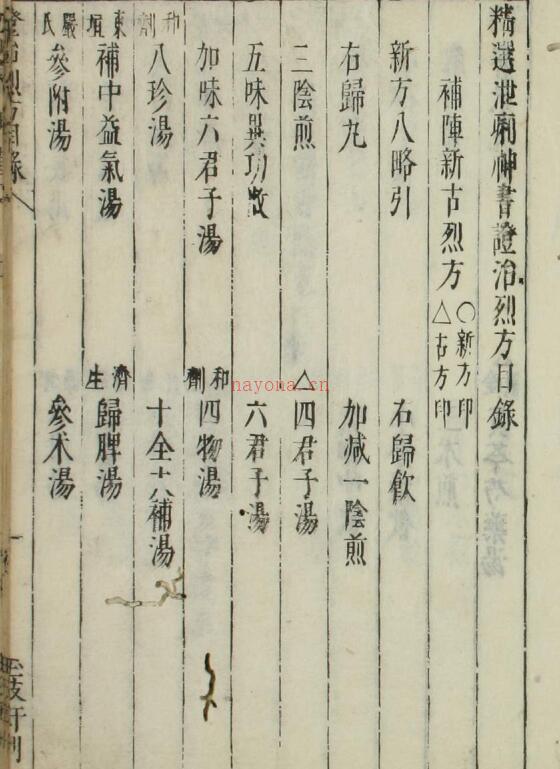 精選泄痢神書證治烈方目錄
補陣新古烈方 〇新方印 △古方印
新方八略引 右歸飲
右歸丸 加減一陰煎
三陰煎 △四君子湯
五味異功散 六君子湯
加味六君子湯 和劑四物湯
和劑八珍湯 十全大補湯
東垣補中益氣湯 濟生歸脾湯
嚴氏參附湯 參朮湯
nayona.cn